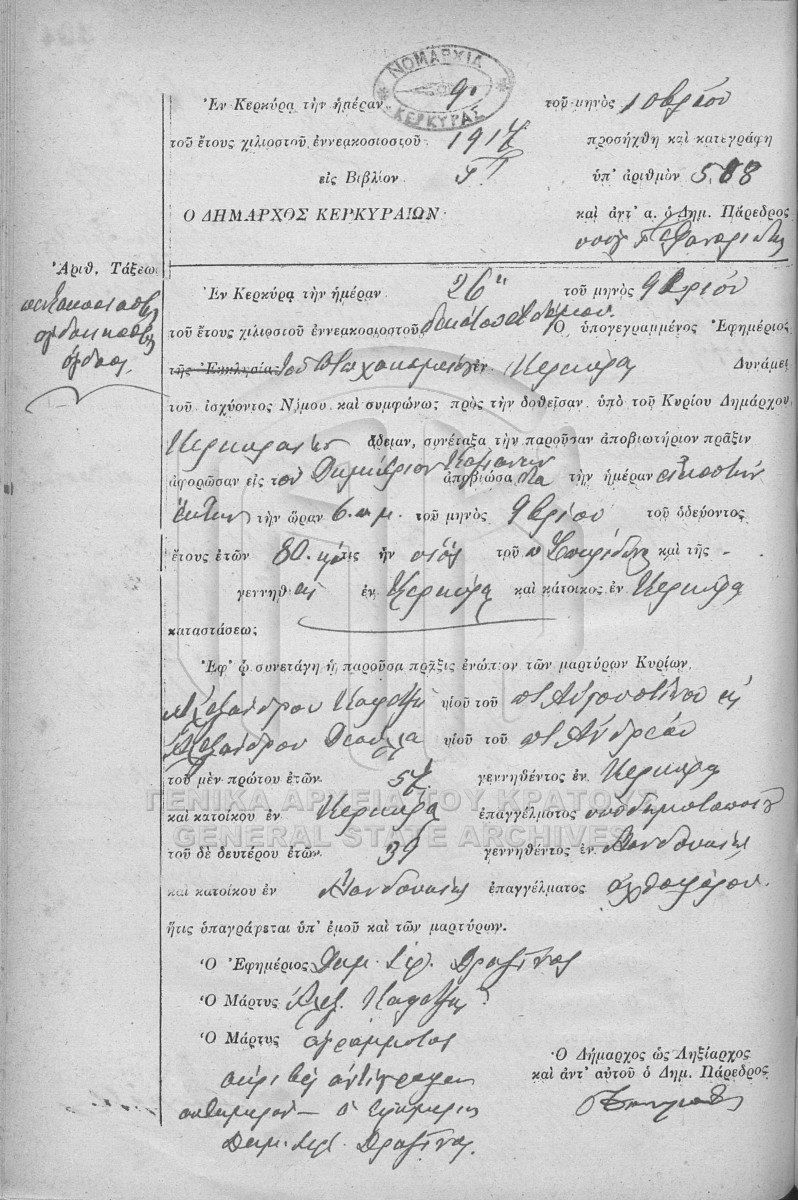 ΝΟΜΑΡΧΙΑ
ΚΕΡΚΥΡΑΣ
Ἐν Κερκύρᾳ τὴν ἡμέραν 9 τοῦ μηνὸς 10βρίου
τοῦ ἔτους χιλιοστοῦ ἐννεακοσιοστοῦ 1917 προσήχθη καὶ κατεγράφη
εἰς Βιβλίον ὑπ' ἀριθμὸν 588
Ο ΔΗΜΑΡΧΟΣ ΚΕΡΚΥΡΑΙΩΝ καὶ ἀντ' α. ὁ Δημ. Πάρεδρος
Ἀριθ. Τάξεως
πεντακοσιοστὴ
ὀγδοηκοστὴ
ὀγδόη
Ἐν Κερκύρᾳ τὴν ἡμέραν 26 τοῦ μηνὸς 9βρίου
τοῦ ἔτους χιλιοστοῦ ἐννεακοσιοστοῦ δεκάτου ἑβδόμου Ὁ ὑπογεγραμμένος Ἐφημέριος
τῆς Ἐκκλησίας τοῦ Πτωχοκομείου ἐν Κερκύρᾳ Δυνάμει
τοῦ ἰσχύοντος Νόμου καὶ συμφώνως πρὸς τὴν δοθεῖσαν ὑπὸ τοῦ Κυρίου Δημάρχου
Κερκυραίων ἄδειαν, συνέταξα τὴν παροῦσαν ἀποβιωτήριον πρᾶξιν
ἀφορῶσαν εἰς τὸν Δημήτριον ἀποβιώσαντα τὴν ἡμέραν εἰκοστὴν
ἕκτην τὴν ὥραν 6 π.μ. τοῦ μηνὸς 9βρίου τοῦ ὁδεύοντος
ἔτους ἐτῶν 80 ὅστις ἦν υἱὸς τοῦ π Σπυρίδωνος καὶ τῆς -
γεννηθεὶς ἐν Κερκύρᾳ καὶ κάτοικος ἐν Κερκύρᾳ
καταστάσεως
Ἐφ' ᾧ συνετάγη ἡ παροῦσα πρᾶξις ἐνώπιον τῶν μαρτύρων Κυρίων
Ἀλεξάνδρου υἱοῦ τοῦ π. Αὐγουστίνου καὶ
Ἀλεξάνδρου υἱοῦ τοῦ π. Ἀνδρέου
τοῦ μὲν πρώτου ἐτῶν 57 γεννηθέντος ἐν Κερκύρᾳ
καὶ κατοίκου ἐν Κερκύρᾳ ἐπαγγέλματος ὑποδηματοποιοῦ
τοῦ δὲ δευτέρου ἐτῶν 39 γεννηθέντος ἐν Μανδουκίῳ
καὶ κατοίκου ἐν Μανδουκίῳ ἐπαγγέλματος ἀχθοφόρου
ἥτις ὑπαγράφεται ὑπ' ἐμοῦ καὶ τῶν μαρτύρων.
Ὁ Ἐφημέριος
Ὁ Μάρτυς Ἀλεξ.
Ὁ Μάρτυς ἀγράμματος
ἀκριβὲς ἀντίγραφον
αὐθημερὸν ὁ Ἐφημέριος
Ὁ Δήμαρχος ὡς Ληξίαρχος
καὶ ἀντ' αὐτοῦ ὁ Δημ. Πάρεδρος
ΓΕΝΙΚΑ ΑΡΧΕΙΑ ΤΟΥ ΚΡΑΤΟΥΣ
GENERAL STATE ARCHIVES